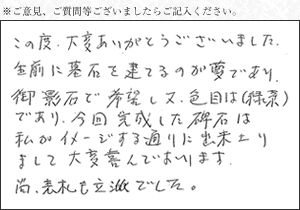 ※ご意見、ご質問等ございましたらご記入ください。
この度、大変ありがとうございました。
生前に墓石を建てるのが夢であり、
御影石で希望し又、色目は(緑系)
であり、今回完成した碑石は
私がイメージする通りに出来上り
まして大変喜んでおります。
尚、表札も立派でした。